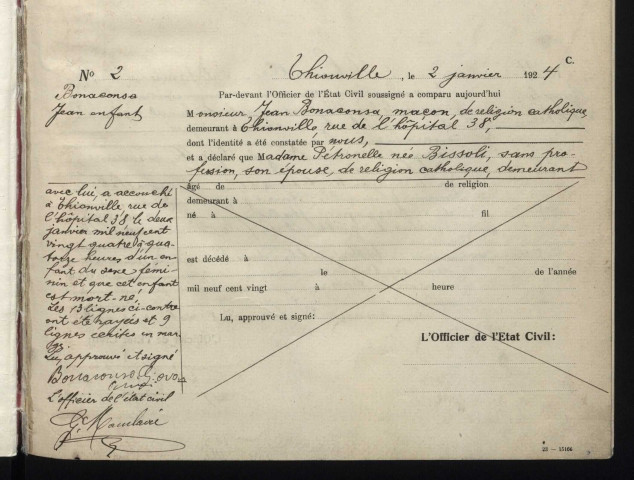 C.
No 2
Thionville, le 2 janvier 1924
Bonaconsa
Jean enfant
Par-devant l'Officier de l'État Civil soussigné a comparu aujourd'hui
Monsieur Jean Bonaconsa, maçon, de religion catholique,
demeurant à Thionville, rue de l'hôpital 38,
dont l'identité a été constatée par nous,
et a déclaré que Madame Pétronelle née Bissoli, sans pro-
fession, son épouse, de religion catholique, demeurant
âgé de de religion
demeurant à
né à fil
est décédé à
le de l'année
mil neuf cent vingt à heure
Lu, approuvé et signé:
L'Officier de l'Etat Civil:
avec lui, a accouché
à Thionville rue de
l'hôpital 38 le deux
janvier mil neuf cent
vingt quatre à qua-
torze heures d'un en-
fant du sexe fémi-
nin et que cet enfant
est mort-né.
Les 13 lignes ci-contre
ont été rayées et 9
lignes écrites en mar-
ge.
Lu, approuvé et signé
L'officier de l'état civil
22 — 15166